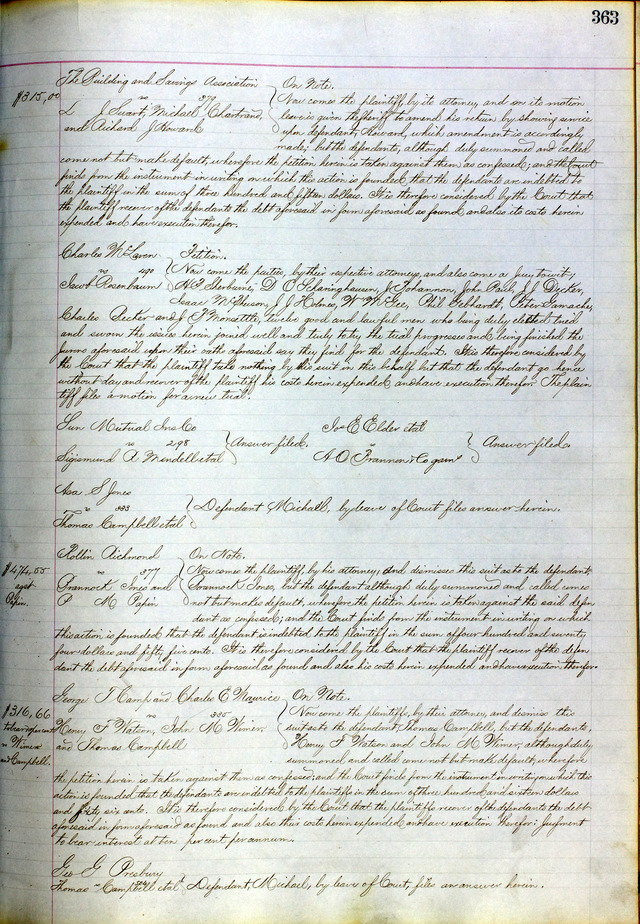 363
The Building and Savings Association On Note.
$315,00
vs 379 Now comes the plaintiff, by its attorney, and on its motion
L J Swart, Michael Chartrand, leave is given the sheriff to amend his return by showing service
and Richard J Howard upon defendant Howard, which amendment is accordingly
made; but the defendants, although duly summoned and called
come not but make default, wherefore the petition herein is taken against them as confessed; and the Court
finds from the instrument in writing on which this action is founded, that the defendants are indebted to
the plaintiff in the sum of three hundred and fifteen dollars. It is therefore considered by the Court that
the plaintiff recover of the defendants the debt aforesaid in form aforesaid as found, and also its costs herein
expended and have execution therefor.
Charles McLaren Petition.
vs 490 Now come the parties, by their respective attorneys, and also come a Jury to wit;
Jacob Rosenbaum D C Scheringhausen, J Johannon, John Paul, J J Decker,
Isaac McGheson, J J Holmes, W McGee, Phil Gebhardt, Peter Gamache,
Charles Becker and J T Monsettle, twelve good and lawful men who being duly elected tried
and sworn the issues herein joined well and truly to try the trial progresses and being finished the
Jurors aforesaid upon their oath aforesaid say they find for the defendant. It is therefore considered by
the Court that the plaintiff take nothing by his suit in this behalf but that the defendant go hence
without day and recover of the plaintiff his costs herein expended and have execution therefor. The plain
tiff files a motion for a new trial.
Sun Mutual Ins Co Jos E Elder et al
vs 298 Answer filed. vs Answer filed.
Sigismund A Mendell et al A O Brannon & Co garns
Asa S Jones
vs 333 Defendant Michael, by leave of Court files answer herein.
Thomas Campbell et al
Rollin Richmond On Note.
$474,55 vs 377 Now comes the plaintiff, by his attorney, and dismisses this suit as to the defendant,
agst Brannock Jones and Brannock Jones, but the defendant although duly summoned and called comes
Papin. P M Papin not but makes default, wherefore the petition herein is taken against the said defen
dant as confessed; and the Court finds from the instrument in writing on which
this action is founded that the defendant is indebted to the plaintiff in the sum of four hundred and seventy
four dollars and fifty five cents. It is therefore considered by the Court that the plaintiff recover of the defen
dant the debt aforesaid in form aforesaid as found and also his costs herein expended and have execution therefor.
George T Camp and Charles E Maurice On Note.
$316,66 vs 335 Now come the plaintiffs, by their attorney, and dismiss this
Henry F Watson, John M Wimer, suit as to the defendant, Thomas Campbell, but the defendants,
Wimer and Thomas Campbell Henry F Watson and John M Wimer, although duly
and Campbell. summoned and called come not but make default, wherefore
the petition herein is taken against them as confessed; and the Court finds from the instrument in writing on which this
action is founded that the defendants are indebted to the plaintiffs in the sum of three hundred and sixteen dollars
and sixty six cents. It is therefore considered by the Court that the plaintiffs recover of the defendants the debt
aforesaid in form aforesaid as found and also their costs herein expended and have execution therefor: Judgment
to bear interest at ten per cent per annum.
Geo G Presbury
Thomas Campbell et al Defendant, Michael, by leave of Court, files an answer herein.